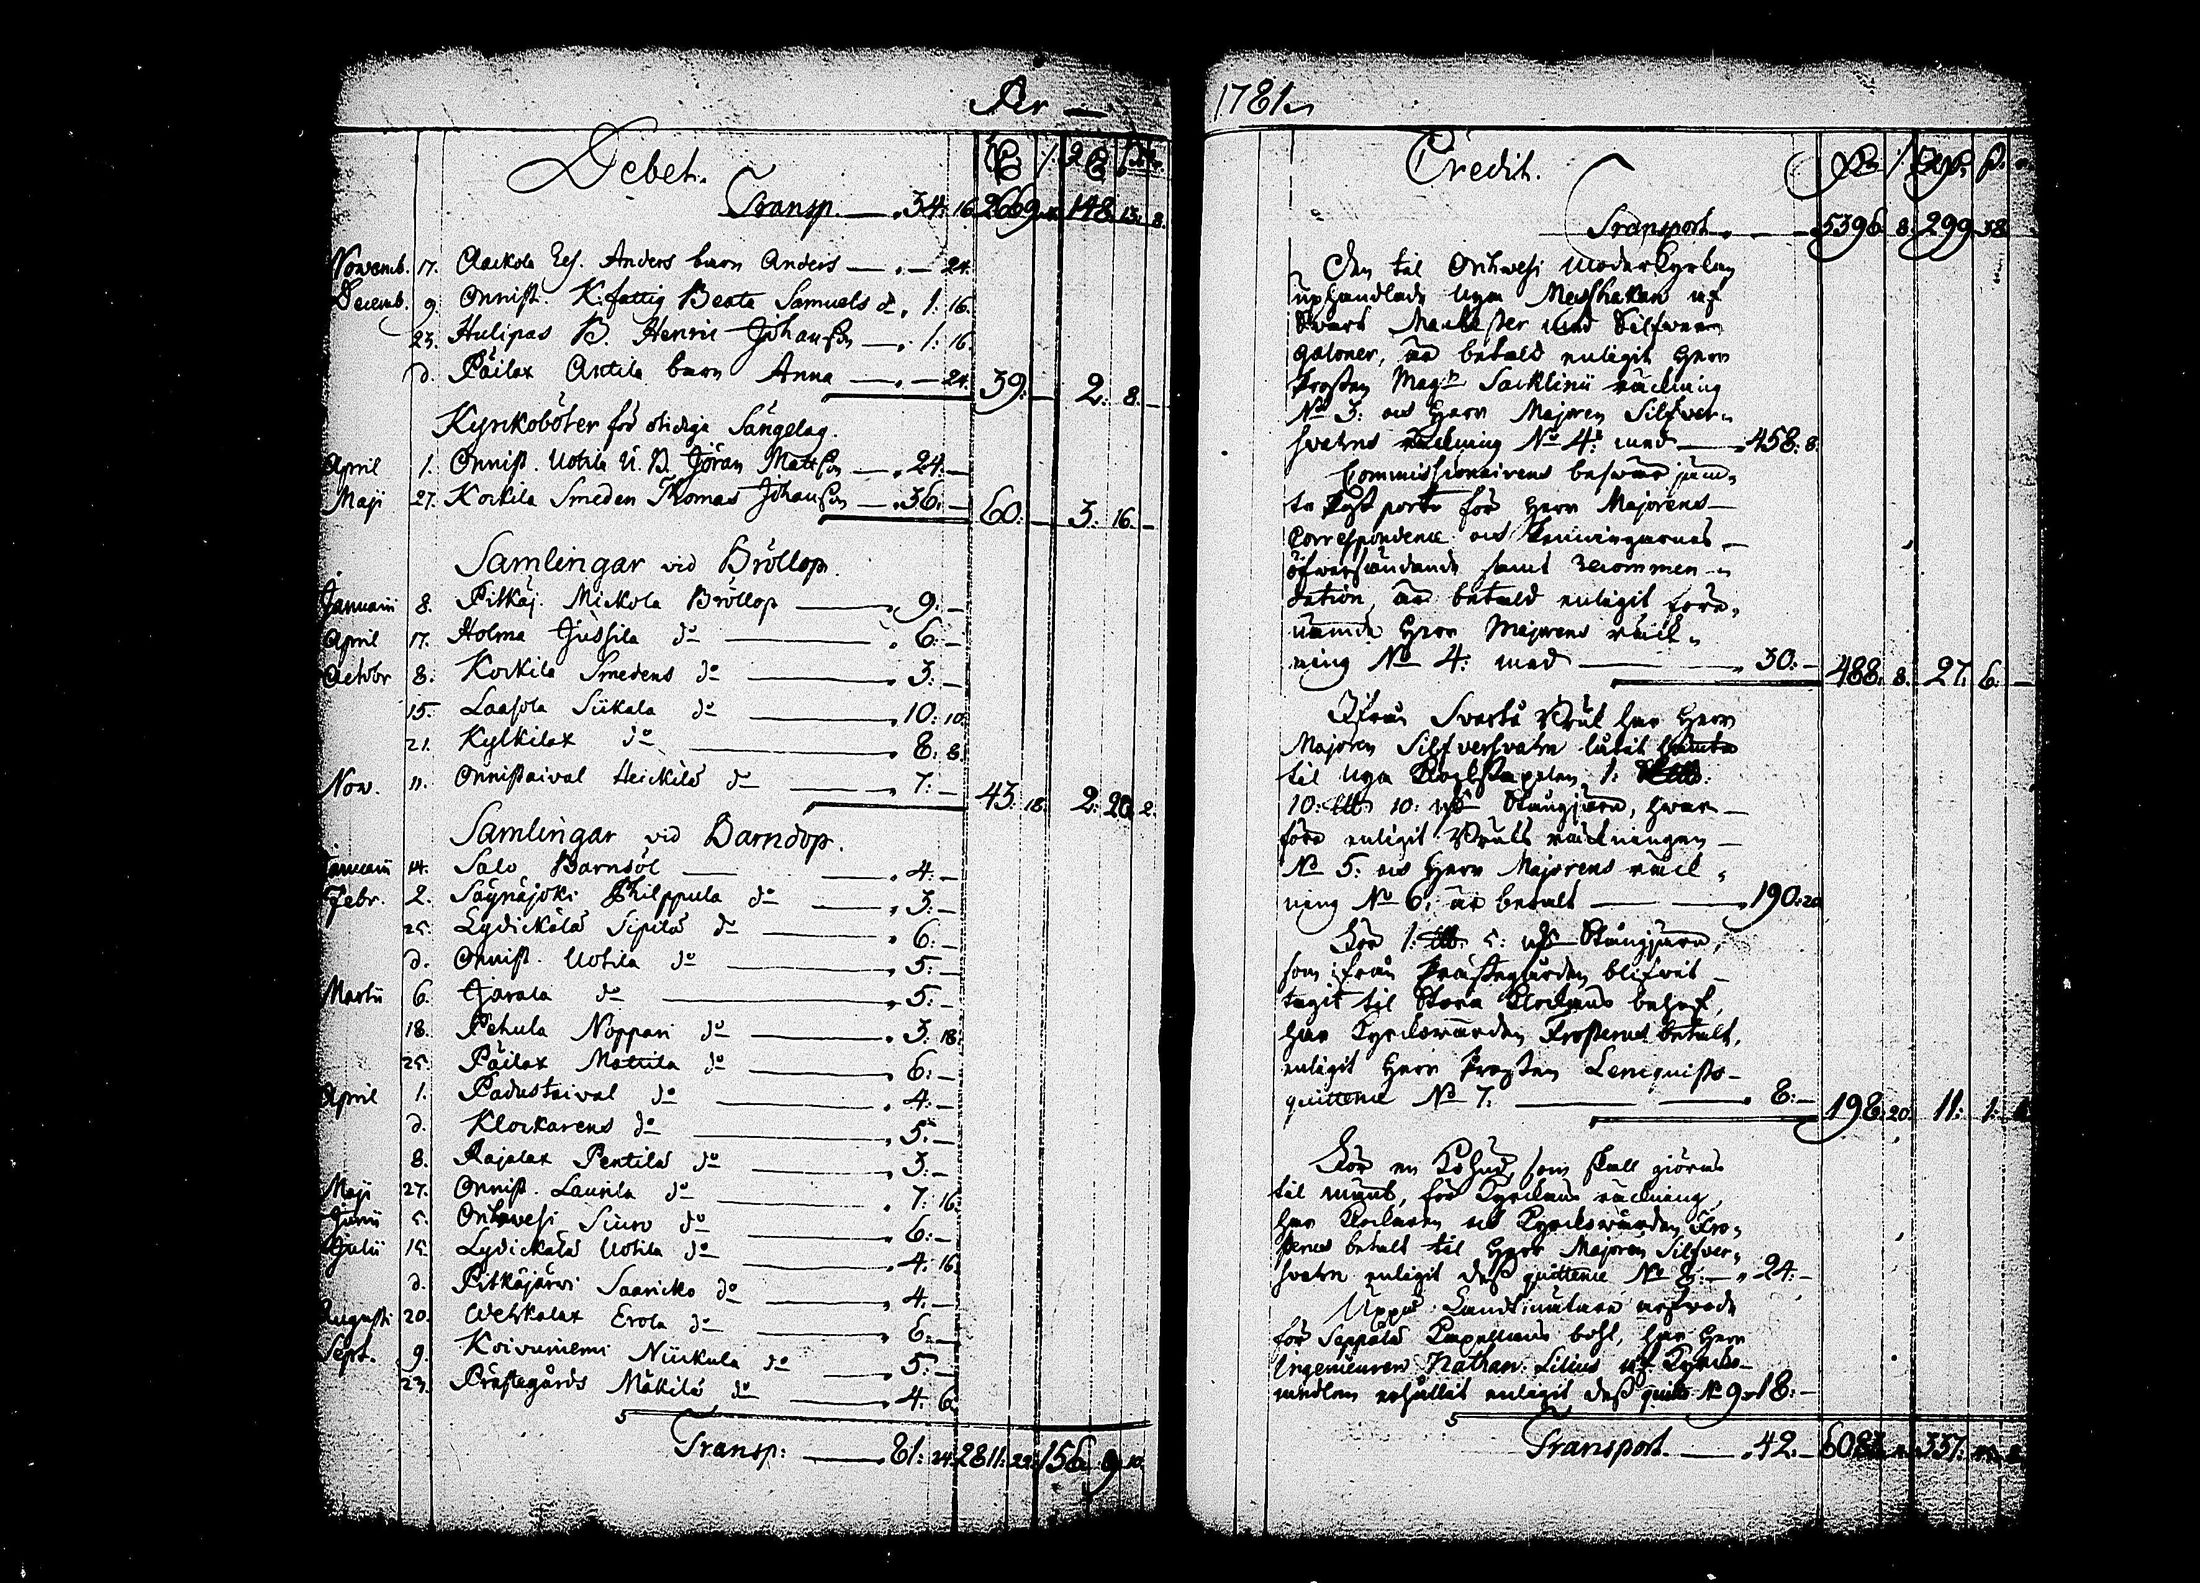 Per —
Debet.
Transp. — 34: 16. 2669. 148. 13. 8.
Novemb. 17. Anders barn Anders — " — 24.
Decemb. 9. Onnist. K. fattig Beata Samuels do " 1: 16.
23. Hulipas B. Henric Johansson — " 1: 16.
d. Päilax Antila barn Anna — " — 24. 39: — 2: 8. —
Kyrkoböter för otidiga Sängelag.
April 1. Onnist. Uotila U. B. Jöran Mattsson — " 24: —
Maji 27. Korkila Smeden Thomas Johansson — " 36: — 60: — 3: 16. —
Samlingar vid Bröllop.
Januarii 8. Pitkäj. Mickola Bröllop — " 9: —
April 17. Holma Jussila do — " 6: —
Octobr 8. Korkila Smedens do — " 3: —
15. Laasola Siikala do — " 10: 10.
21. Kylkilax do — " 8: 8.
Nov. 11. Onnistaival Heickilä do — " 7: — 43: 18. 2: 20. 2.
Samlingar vid Barndop.
Januarii 14. Salo Barnsöl — " 4: —
Febr. 2. Säynäjoki Philppula do — " 3: —
25. Lydickälä Sipilä do — " 6: —
d. Onnist. Uotila do — " 5: —
Martii 6. Jarala do — " 5: —
18. Pehula Noppari do — " 3: 18.
25. Päilax Mattila do — " 6: —
April 1. Padustaival do — " 4: —
d. Klockarens do — " 5: —
8. Rajalax Pentilä do — " 3: —
Maji 27. Onnist. Laurila do — " 7: 16.
Junii 5. Orihvesi Siuro do — " 6: —
Julii 15. Lydickälä Uotila do — " 4: 16.
d. Pitkäjärvi Saaricko do — " 4: —
Augusti 20. Wehkalax Erola do — " 6: —
Sept. 9. Koivuniemi Niickula do — " 5: —
23. Prästegårds Mäkilä do — " 4: 6.
Transp: — 81: 24. 2811: 22. 156. 9. 10.
1781
Credit.
Transport — 5396. 8. 299. 38.
Den til Orihwesi moderkyrkan
uphandlade nya Messhaken af
Svart Manchester med Silfver
galoner, är betald enligit Herr
Prosten Mag:r Sacklinii räckning
No 3: och Herr Majoren Silfver-
svahns räckning No 4: med — " 458: 8.
Commissionairens besvär jäm-
te Postporto för Herr Majorens
Correspondence och Penningarnes
öfversändande samt recommen-
dation, är betald enligit före-
nämde Herr Majorens räck-
ning No 4: med — " 30: — 488: 8. 27: 6. —
Ifrån Svartå Bruk har Herr
Majoren Silfversvahn låtit hämta
til nya Klockstapelen 1:
10: 10: Stångjern, hvar-
före enligit Bruks räckningen
No 5: och Herr Majorens räck-
ning No 6: är betalt — " 190: 20
För 1: 5: Stångjern,
som ifrån Prästegården blifvit
tagit til Stora Klockans behof,
har Kyrckovärden Prosterus betalt,
enligit Herr Prosten Lencquists
quittence No 7. — " 8: — 198: 20. 11: 1:
För en Kohud, som skall giöras
til , för Kyrckans räckning,
har Klockaren och Kyrckovärden Pro-
sterus betalt til Herr Majoren Silfver-
svahn enligit dess quittence No 8: — " 24: —
Uppå Landtmätare arfvode
för Seppälä Kapellans bohl, har Herr
Ingenieuren Nathan. Lilius af Kyrcko-
medlen erhållit enligit dess quitt. No 9. 18: —
Transport — " 42: — 337: